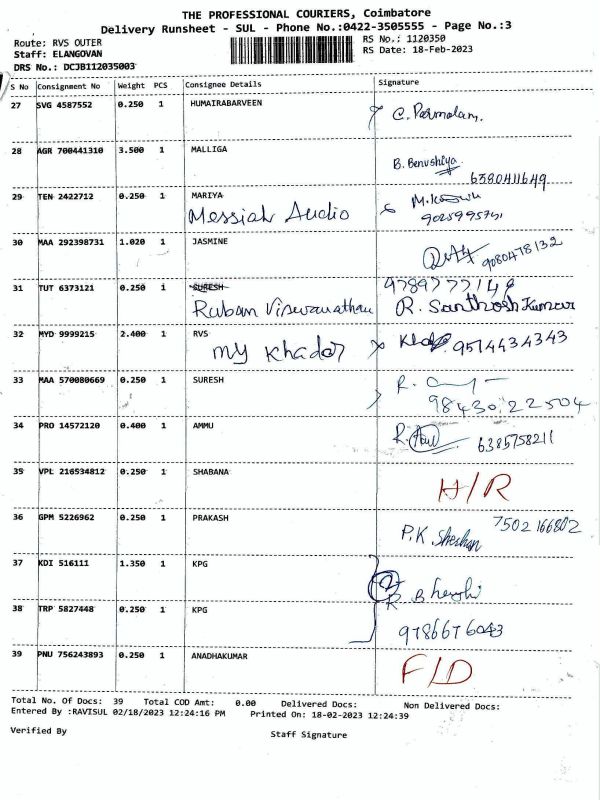 THE PROFESSIONAL COURIERS, Coimbatore
Delivery Runsheet - SUL - Phone No.:0422-3505555 - Page No.:3
Route: RVS OUTER
RS No.: 1120350
Staff: ELANGOVAN
RS Date: 18-Feb-2023
DRS No.: DCJB112035003
S No Consignment No Weight PCS Consignee Details Signature
27 SVG 4587552 0.250 1 HUMAIRABARVEEN
C. Parmalam.
28 AGR 700441310 3.500 1 MALLIGA
B. Benushiya
6380411649
29 TEN 2422712 0.250 1 MARIYA
Messiah Audio
9025995751
30 MAA 292398731 1.020 1 JASMINE
9080478132
31 TUT 6373121 0.250 1 SURESH
9789777149
Ruban Viswanathan R. Santhosh Kumar
32 MYD 9999215 2.400 1 RVS
My Khader 9514434343
33 MAA 570080669 0.250 1 SURESH
98430.22504
34 PRO 14572120 0.400 1 AMMU
6385758211
35 VPL 216534812 0.250 1 SHABANA
H/R
36 GPM 5226962 0.250 1 PRAKASH
7502166802
P.K
37 KDI 516111 1.350 1 KPG
38 TRP 5827448 0.250 1 KPG
9786676043
39 PNU 756243893 0.250 1 ANADHAKUMAR
F/D
Total No. Of Docs: 39 Total COD Amt: 0.00 Delivered Docs: Non Delivered Docs:
Entered By :RAVISUL 02/18/2023 12:24:16 PM Printed On: 18-02-2023 12:24:39
Verified By
Staff Signature